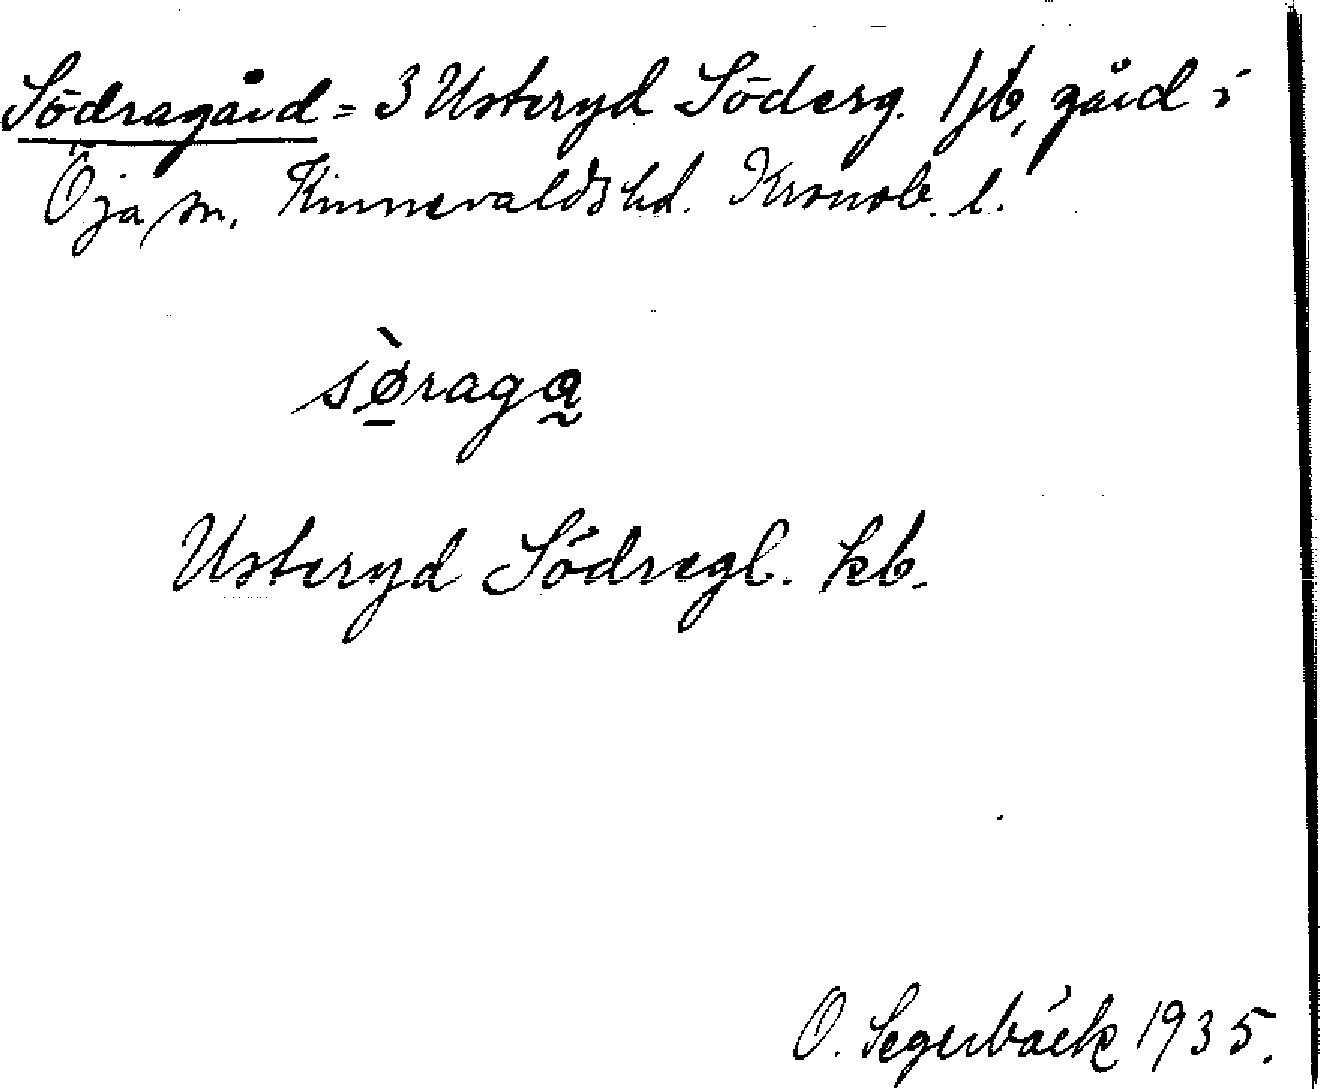 Södragård = 3 Usteryd Söderg. 1 jb, gård i
Öja sn. Kinnevalds hd. Kronob. l.
sø̀raga
Usteryd Södregl. kb.
O. Segerbäck 1935.